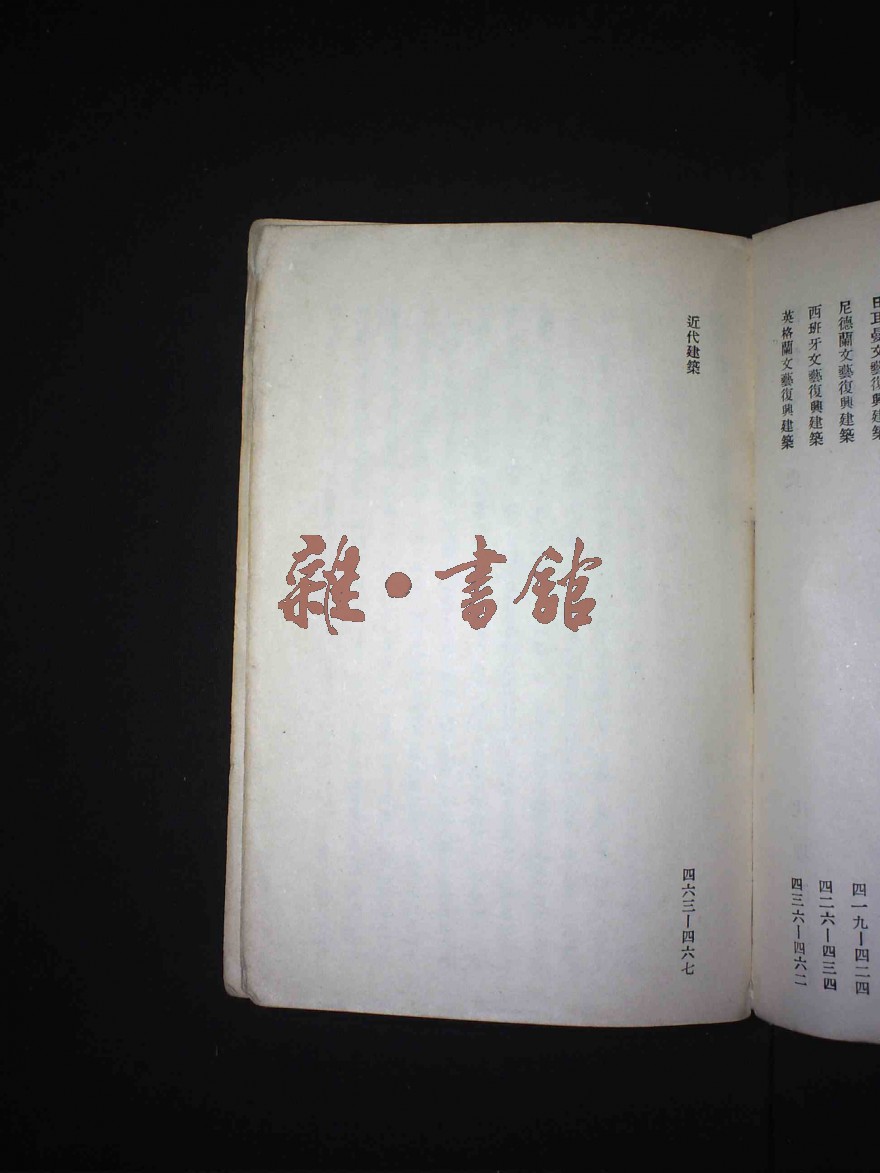 日耳曼文藝復興建築
尼德蘭文藝復興建築 四一九—四二四
西班牙文藝復興建築 四二六—四三四
英格蘭文藝復興建築 四三六—四六二
近代建築 四六三—四六七
雜·書館